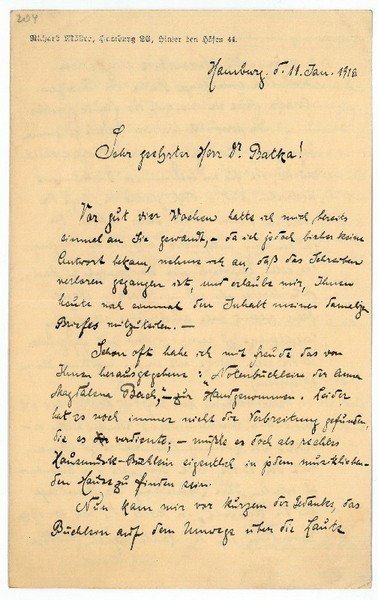 204
Richard Möller, Hamburg 26, Hinter den Höfen 44.
Hamburg, d. 11. Jan. 1912
Sehr geehrter Herr Dr. Batka!
Vor gut vier Wochen hatte ich mich bereits
einmal an Sie gewandt, – da ich jedoch bisher keine
Antwort bekam, nehme ich an, daß das Schreiben
verloren gegangen ist, und erlaube mir, Ihnen
heute noch einmal den Inhalt meines damaligen
Briefes mitzuteilen. –
Schon oft habe ich mit Freude das von
Ihnen herausgegebene: „Notenbüchlein der Anna
Magdalena Bach“, – zur Hand genommen. Leider
hat es noch immer nicht die Verbreitung gefunden,
die es verdiente, – müßte es doch als rechtes
Hausmusik-Büchlein eigentlich in jedem musikliebenden
den Hause zu finden sein.
Nun kam mir vor kurzem der Gedanke, das
Büchlein auf dem Umwege über die Laute